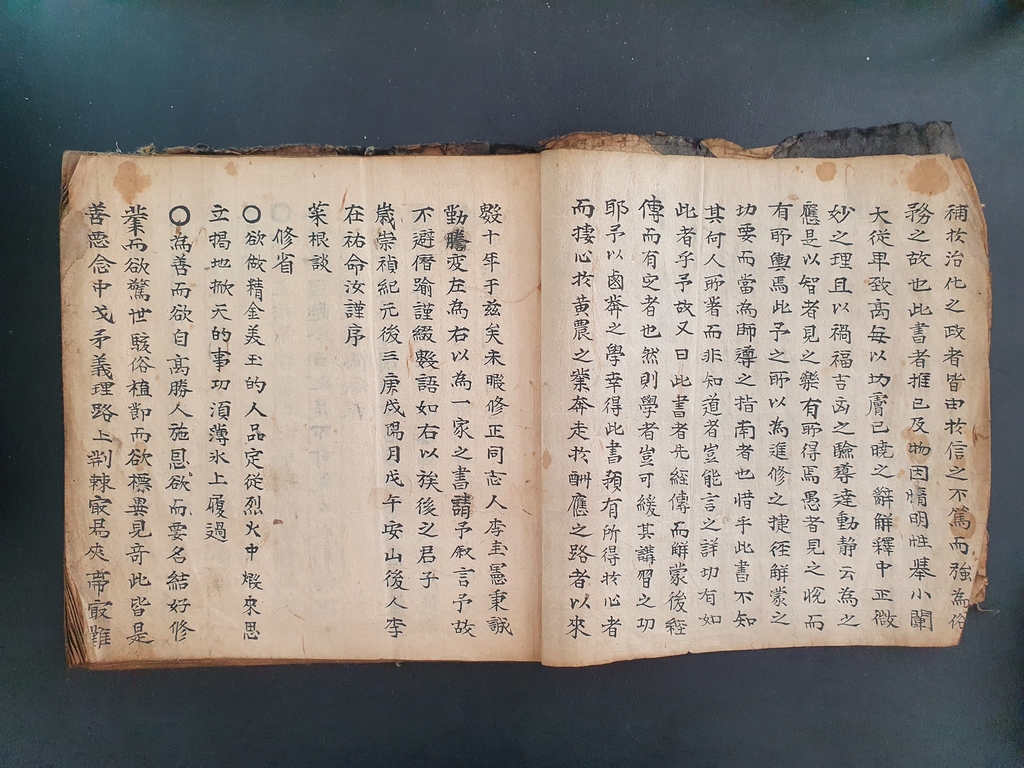 補扵治化之政者皆由扵信之不篤而強為俗
務之故也此書者推已及物因情明性擧小闡
大從卑致高每以功膚已曉之辭解釋中正微
妙之理且以禍福吉凶之驗導達動静云為之
應是以智者見之樂有所得焉愚者見之悅而
有所輿焉此予之所以為進修之捷徑解蒙之
功要而當為師導之指南者也惜乎此書不知
其何人所著而非知道者豈能言之詳切有如
此者乎予故又曰此書者先經傳而解蒙後經
傳而有定者也然則學者豈可緩其講習之功
耶予以鹵莽之學幸得此書頚有所得扵心者
而捿心扵黄農之業奔走扵酬應之路者以來
數十年于玆矣未暇修正同志人李圭憲秉誠
勤謄変左為右以為一家之書請予敘言予故
不避僭踰謹綴數語如右以俟後之君子
歳崇禎紀元後三庚戌陽月戊午安山後人李
在祐命汝謹序
菜根談
修省
〇欲做精金美玉的人品定從烈火中煆來思
立掲地掀天的事功湏薄氷上履過
〇為善而欲自高勝人施恩欲而要名結好修
業而欲驚世駭俗植節而欲標異見奇此皆是
善惡念中戈矛義理路上荆棘㝡易夾帶㝡難